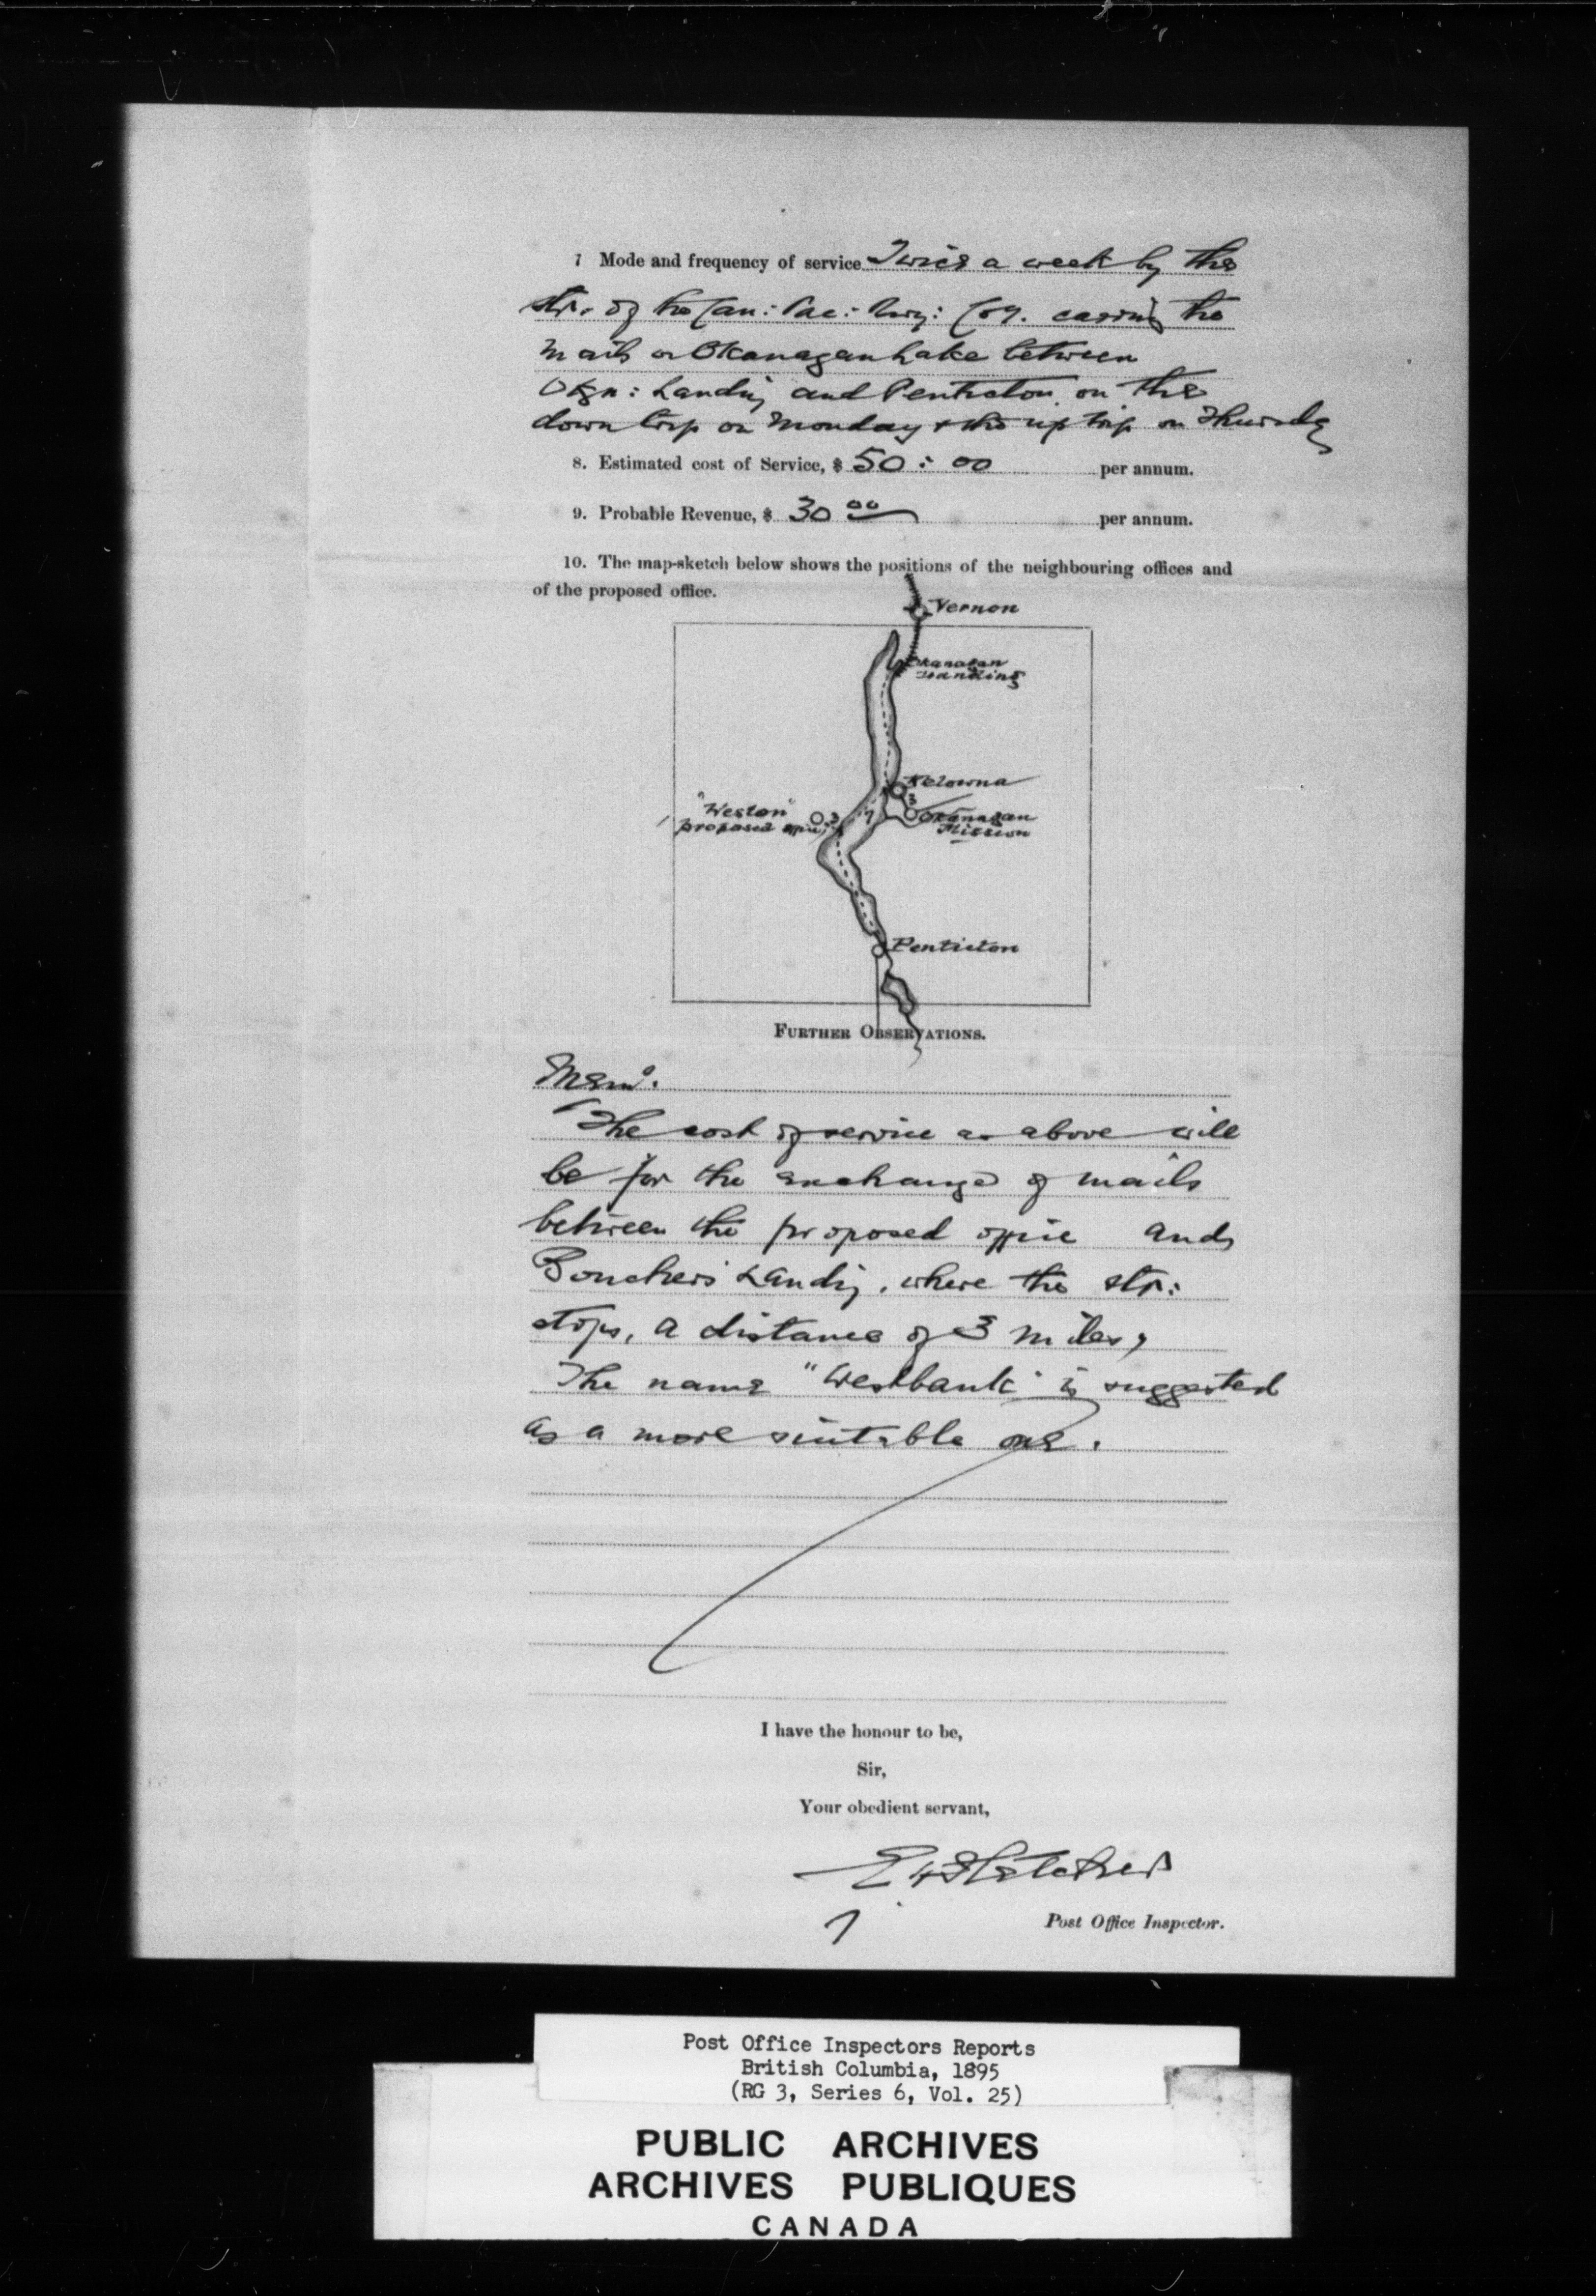 7 Mode and frequency of service Twice a week by the
str. of the Can: Pac: Rwy: Coy. carrying the
mails on Okanagan Lake between
Okn: Landing and Penticton on the
down trip on Monday & the up trip on Thursday
8. Estimated cost of Service, $ 50 : 00 per annum.
9. Probable Revenue, $ 30 00 per annum.
10. The map-sketch below shows the positions of the neighbouring offices and
of the proposed office.
Vernon
Okanagan
Landing
Kelowna
3
"Weston"
proposed office
3
7
Okanagan
Mission
Penticton
FURTHER OBSERVATIONS.
Memo.
The cost of service as above will
be for the exchange of mails
between the proposed office and
Bouchers Landing, where the str:
stops, a distance of 3 miles,
The name "Westbank" is suggested
as a more suitable one.
I have the honour to be,
Sir,
Your obedient servant,
E H Fletcher
Post Office Inspector.
Post Office Inspectors Reports
British Columbia, 1895
(RG 3, Series 6, Vol. 25)
PUBLIC ARCHIVES
ARCHIVES PUBLIQUES
CANADA